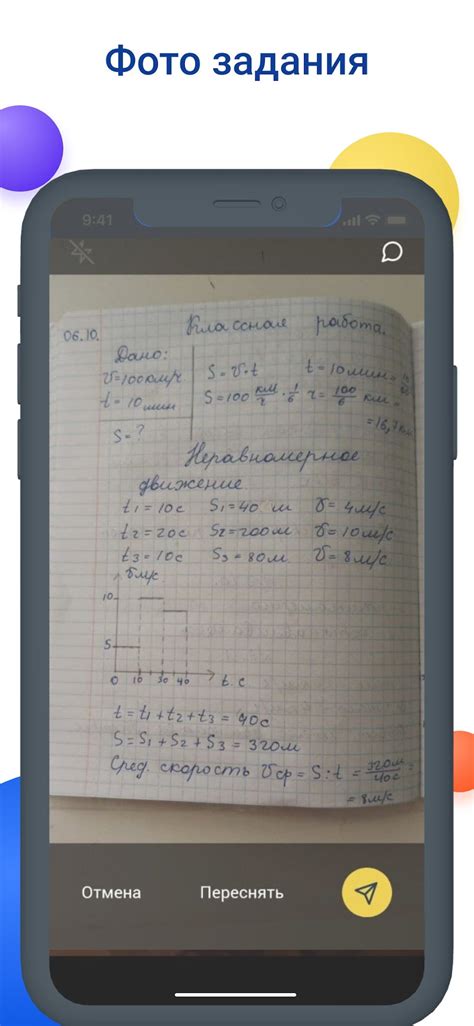 Фото задания
9:41
06.10. Классная работа.
Дано:
v=100км/ч
t = 10 мин
S = ?
S = v·t t = 10 мин =
S = 100 км/ч · 1/6 ч = 100/6 км =
= 16,7 км
Неравномерное
движение
t1 = 10с S1 = 40 м v = 4м/с
t2 = 20с S2 = 200м v = 10м/с
t3 = 10с S3 = 80м v = 8м/с
v м/с
10
5
0 10 30 40 t. с
t = t1 + t2 + t3 = 40с
S = S1 + S2 + S3 = 320м
Сред. скорость vср = S:t = 320м/40с =
= 8м/с
Отмена Переснять